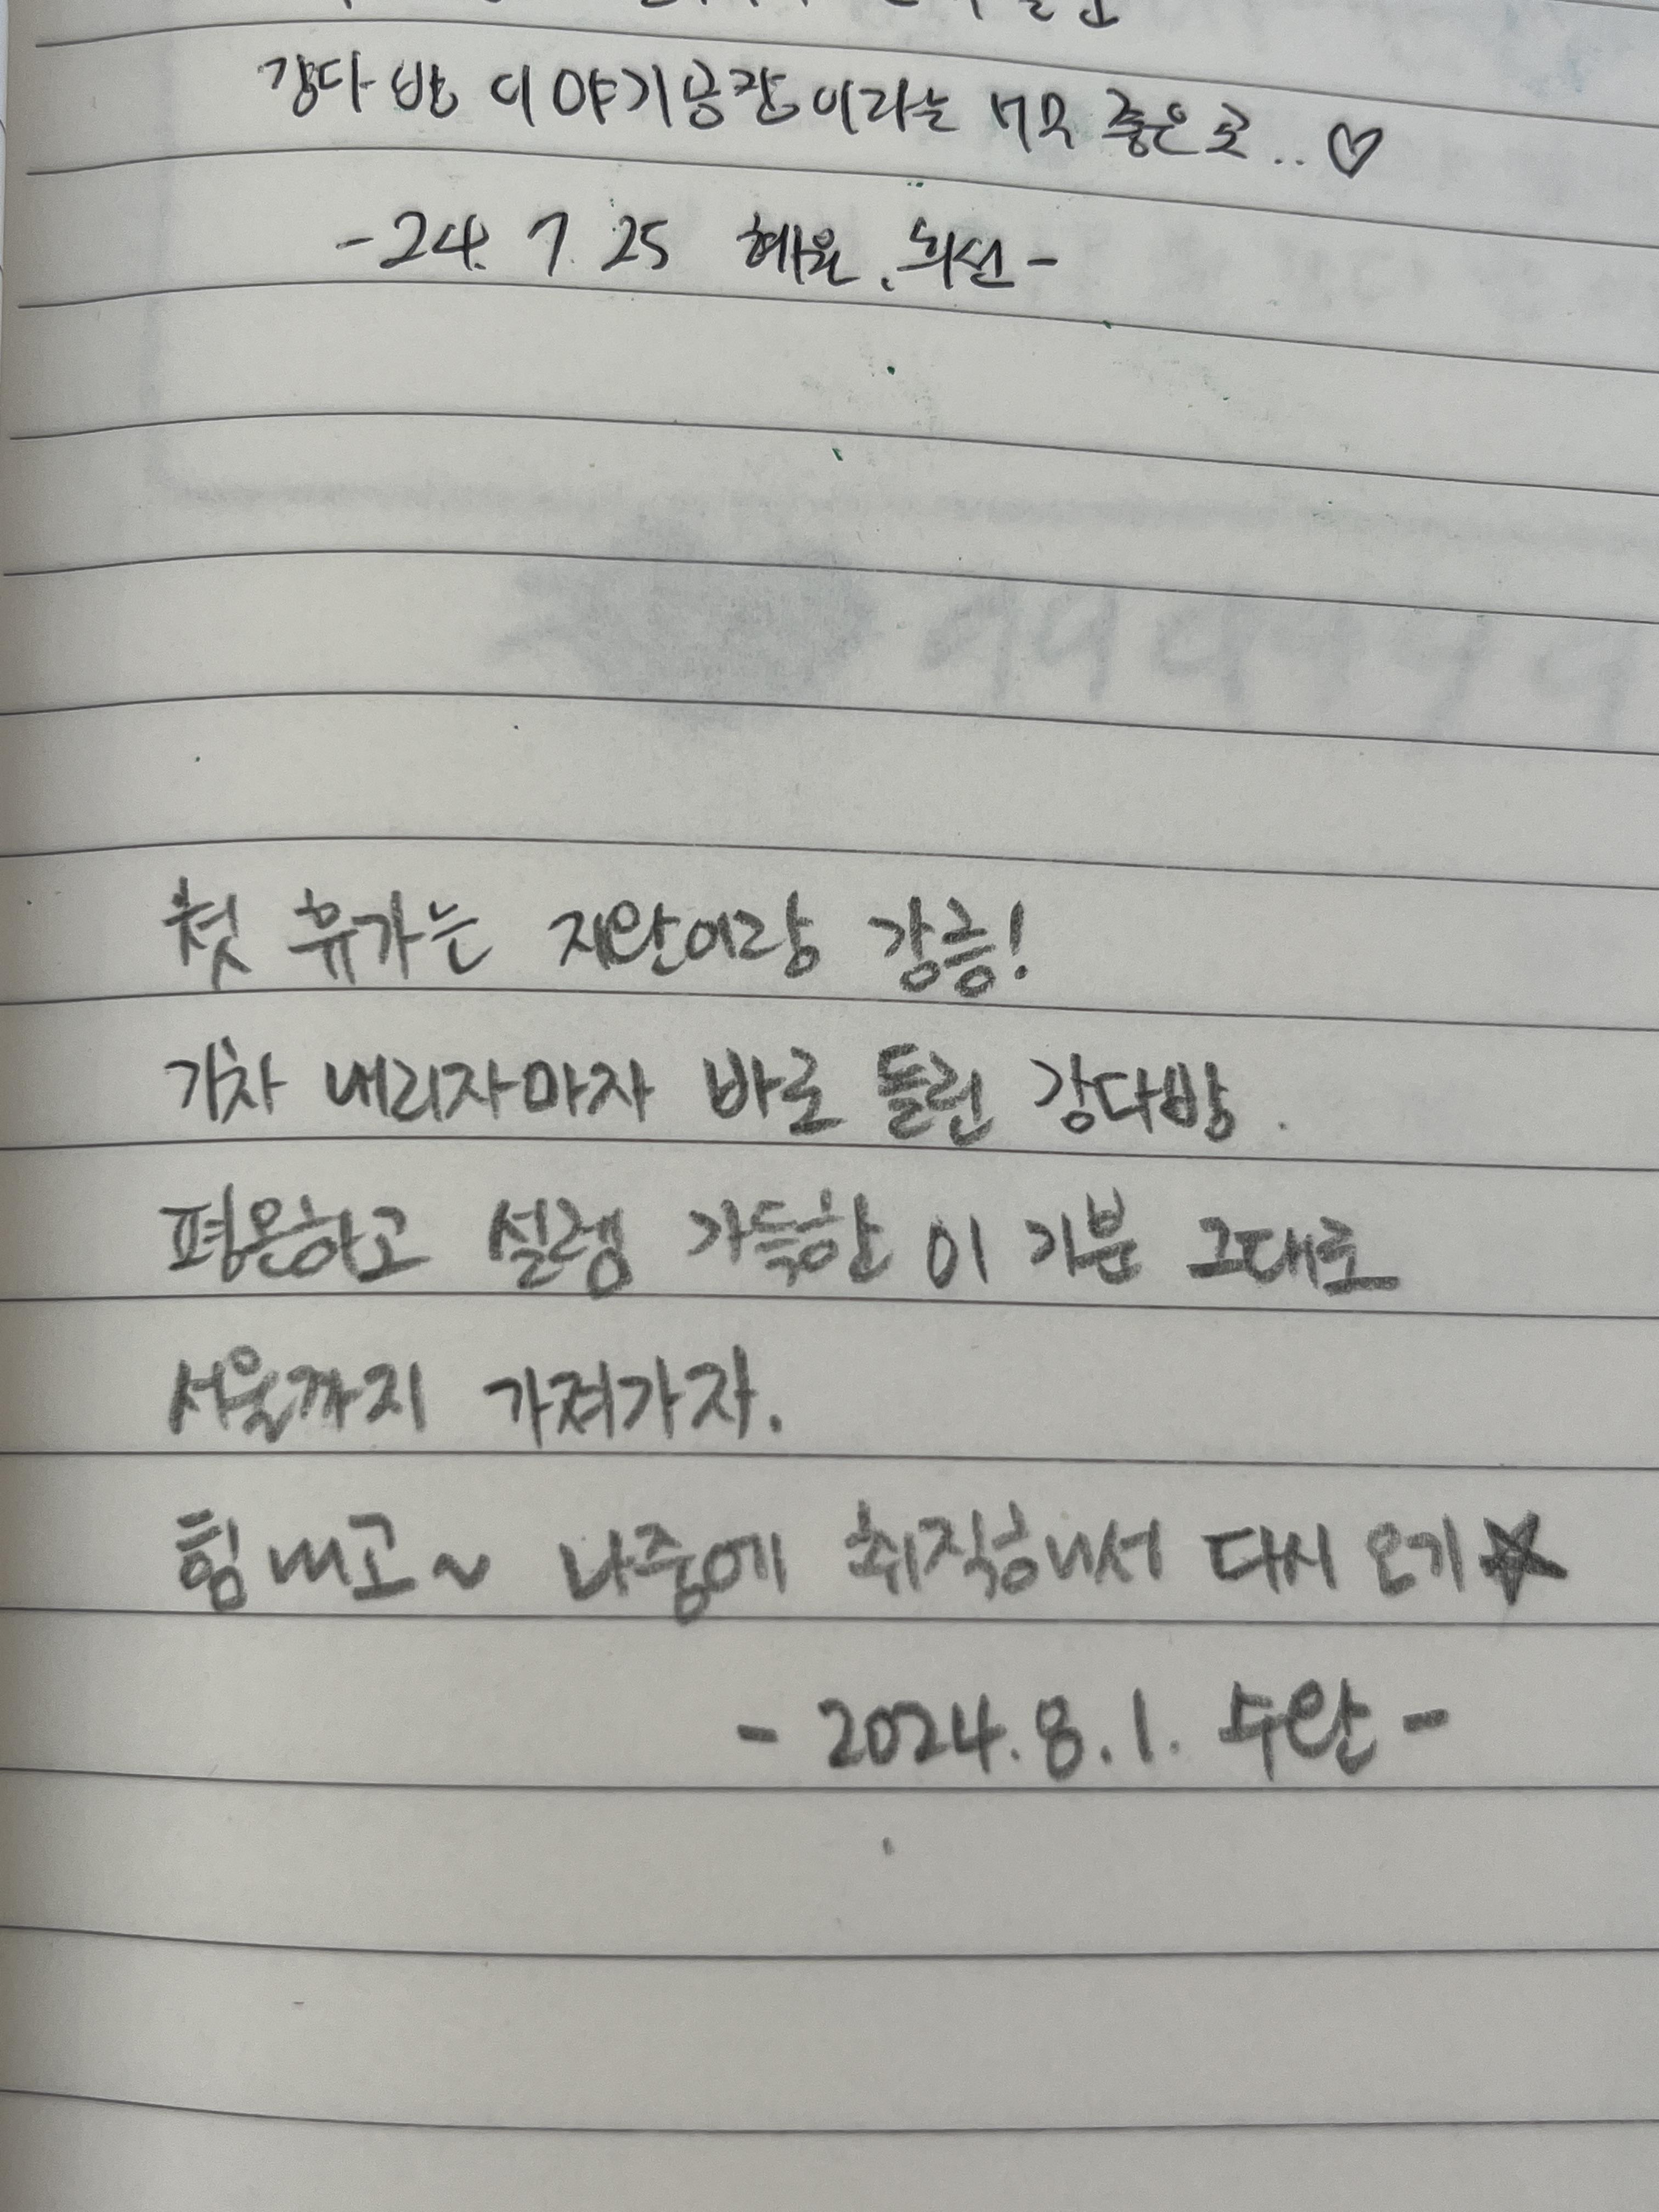 강다방 이야기공장이라는 좋은 곳.. ♡
-24. 7. 25 혜윤, 희선-
첫 휴가는 지안이랑 강릉!
기차 내리자마자 바로 들린 강다방.
평온하고 설렘 가득한 이 기분 그대로
서울까지 가져가자.
힘내고~ 나중에 취직해서 다시 오기☆
- 2024. 8. 1. 수안 -